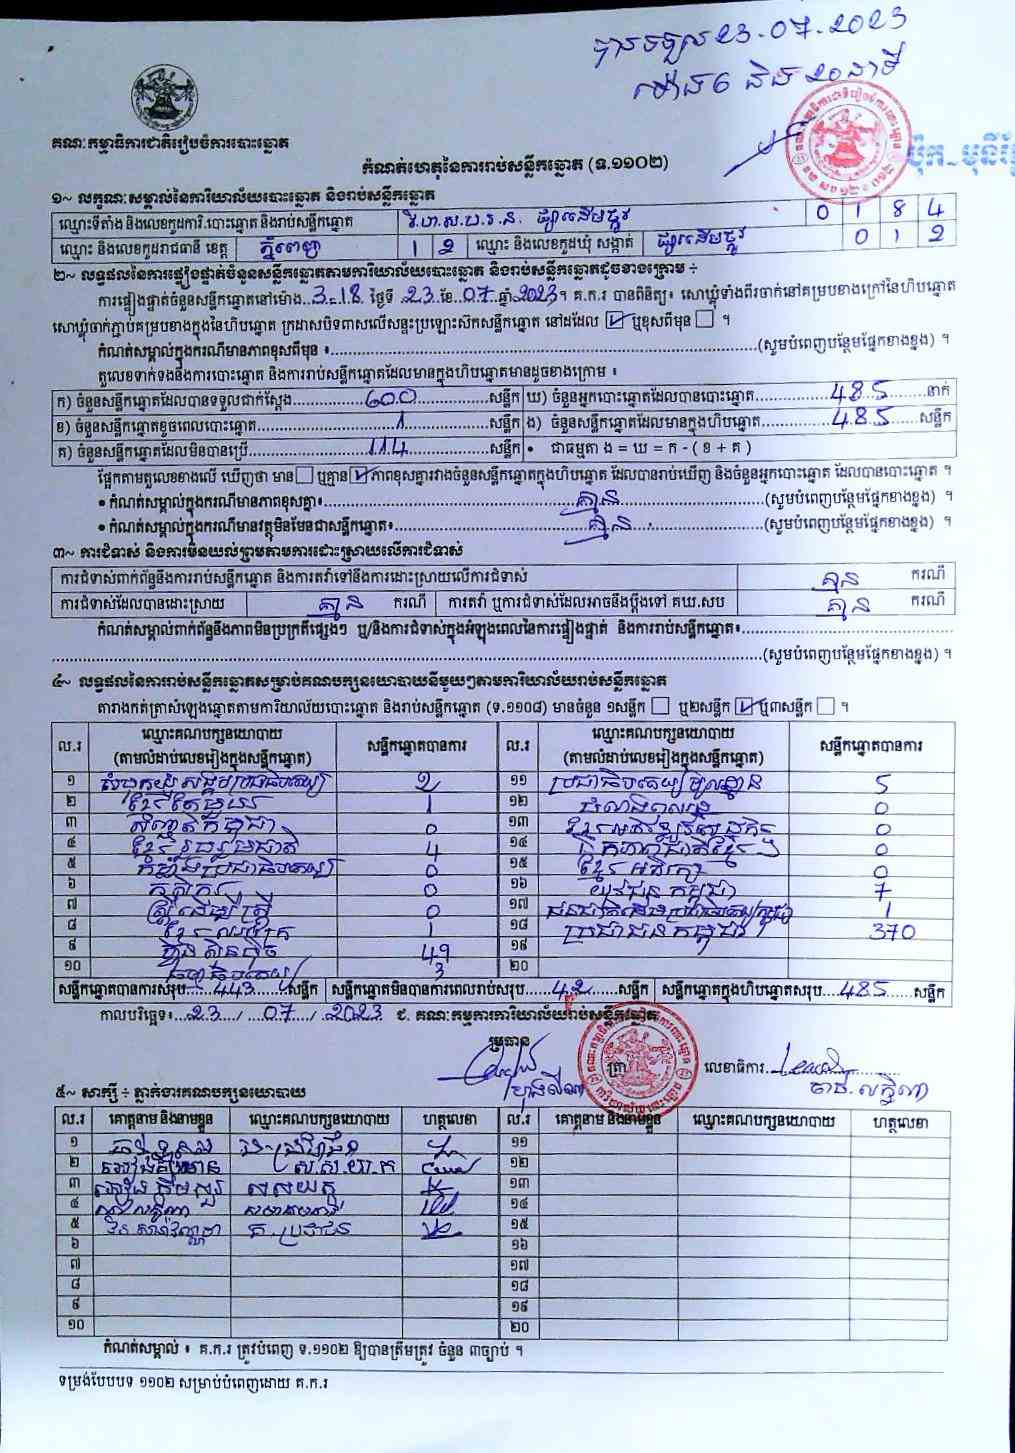 បានទទួល 23.07.2023
ម៉ោង 6 និង 20 នាទី
គណៈកម្មាធិការជាតិរៀបចំការបោះឆ្នោត
កំណត់ហេតុនៃការរាប់សន្លឹកឆ្នោត (ទ.១១០២)
១~ លក្ខណៈសម្គាល់នៃការិយាល័យបោះឆ្នោត និងរាប់សន្លឹកឆ្នោត
ឈ្មោះទីតាំង និងលេខកូដការិ.បោះឆ្នោត និងរាប់សន្លឹកឆ្នោត វិ.ហ.ស.ប.រ.ន. ផ្សារដើមថ្កូវ 0 1 8 4
ឈ្មោះ និងលេខកូដរាជធានី ខេត្ត ភ្នំពេញ 1 2 ឈ្មោះ និងលេខកូដឃុំ សង្កាត់ ផ្សារដើមថ្កូវ 0 1 2
២~ លទ្ធផលនៃការផ្ទៀងផ្ទាត់ចំនួនសន្លឹកឆ្នោតតាមការិយាល័យបោះឆ្នោត និងរាប់សន្លឹកឆ្នោតដូចខាងក្រោម ÷
ការផ្ទៀងផ្ទាត់ចំនួនសន្លឹកឆ្នោតនៅម៉ោង 3-18 ថ្ងៃទី 23 ខែ 07 ឆ្នាំ 2023 ។ គ.ក.រ បានពិនិត្យ៖ សោឃ្លុំទាំងពីរចាក់នៅគម្របខាងក្រៅនៃហិបឆ្នោត
សោឃ្លុំចាក់ភ្ជាប់គម្របខាងក្នុងនៃហិបឆ្នោត ក្រដាសបិទពាសលើសន្ទះប្រឡោះសិកសន្លឹកឆ្នោត នៅដដែល ☑ ឬខុសពីមុន ☐ ។
កំណត់សម្គាល់ក្នុងករណីមានភាពខុសពីមុន ៖ (សូមបំពេញបន្ថែមផ្នែកខាងខ្នង) ។
តួលេខទាក់ទងនឹងការបោះឆ្នោត និងការរាប់សន្លឹកឆ្នោតដែលមានក្នុងហិបឆ្នោតមានដូចខាងក្រោម ៖
ក) ចំនួនសន្លឹកឆ្នោតដែលបានទទួលជាក់ស្តែង 600 សន្លឹក ឃ) ចំនួនអ្នកបោះឆ្នោតដែលបានបោះឆ្នោត 485 នាក់
ខ) ចំនួនសន្លឹកឆ្នោតខូចពេលបោះឆ្នោត 1 សន្លឹក ង) ចំនួនសន្លឹកឆ្នោតដែលមានក្នុងហិបឆ្នោត 485 សន្លឹក
គ) ចំនួនសន្លឹកឆ្នោតដែលមិនបានប្រើ 114 សន្លឹក • ជាធម្មតា ង = ឃ = ក - ( ខ + គ )
ផ្អែកតាមតួលេខខាងលើ ឃើញថា មាន ☐ ឬគ្មាន ☑ ភាពខុសគ្នារវាងចំនួនសន្លឹកឆ្នោតក្នុងហិបឆ្នោត ដែលបានរាប់ឃើញ និងចំនួនអ្នកបោះឆ្នោត ដែលបានបោះឆ្នោត ។
• កំណត់សម្គាល់ក្នុងករណីមានភាពខុសគ្នា៖ គ្មាន (សូមបំពេញបន្ថែមផ្នែកខាងខ្នង) ។
• កំណត់សម្គាល់ក្នុងករណីមានវត្ថុមិនមែនជាសន្លឹកឆ្នោត៖ គ្មាន (សូមបំពេញបន្ថែមផ្នែកខាងខ្នង) ។
៣~ ការជំទាស់ និងការមិនយល់ព្រមតាមការដោះស្រាយលើការជំទាស់
ការជំទាស់ពាក់ព័ន្ធនឹងការរាប់សន្លឹកឆ្នោត និងការតវ៉ាទៅនឹងការដោះស្រាយលើការជំទាស់ គ្មាន ករណី
ការជំទាស់ដែលបានដោះស្រាយ គ្មាន ករណី ការតវ៉ា ឬការជំទាស់ដែលអាចនឹងប្តឹងទៅ គឃ.សប គ្មាន ករណី
កំណត់សម្គាល់ពាក់ព័ន្ធនឹងភាពមិនប្រក្រតីផ្សេងៗ ឬ/និងការជំទាស់ក្នុងអំឡុងពេលនៃការផ្ទៀងផ្ទាត់ និងការរាប់សន្លឹកឆ្នោត៖
(សូមបំពេញបន្ថែមផ្នែកខាងខ្នង) ។
៤~ លទ្ធផលនៃការរាប់សន្លឹកឆ្នោតសម្រាប់គណបក្សនយោបាយនីមួយៗតាមការិយាល័យរាប់សន្លឹកឆ្នោត
តារាងកត់ត្រាសំឡេងឆ្នោតតាមការិយាល័យបោះឆ្នោត និងរាប់សន្លឹកឆ្នោត (ទ.១១០៨) មានចំនួន ១សន្លឹក ☐ ឬ២សន្លឹក ☑ ឬ៣សន្លឹក ☐ ។
ល.រ ឈ្មោះគណបក្សនយោបាយ (តាមលំដាប់លេខរៀងក្នុងសន្លឹកឆ្នោត) សន្លឹកឆ្នោតបានការ ល.រ ឈ្មោះគណបក្សនយោបាយ (តាមលំដាប់លេខរៀងក្នុងសន្លឹកឆ្នោត) សន្លឹកឆ្នោតបានការ
១ សំបុកឃ្មុំសង្គមប្រជាធិបតេយ្យ 2 ១១ ប្រជាធិបតេយ្យមូលដ្ឋាន 5
២ ខ្មែរតែមួយ 1 ១២ 0
៣ សញ្ជាតិកម្ពុជា 0 ១៣ ខ្មែរអភិវឌ្ឍន៍សេដ្ឋកិច្ច 0
៤ ខ្មែររួបរួមជាតិ 4 ១៤ 0
៥ កម្លាំងប្រជាធិបតេយ្យ 0 ១៥ ខ្មែរអភិរក្ស 0
៦ កសិករ 0 ១៦ យុវជនកម្ពុជា 7
៧ ស្ត្រីដើម្បីស្ត្រី 0 ១៧ ជនជាតិដើមប្រជាធិបតេយ្យកម្ពុជា 1
៨ ខ្មែរឈប់ក្រ 1 ១៨ ប្រជាជនកម្ពុជា 370
៩ ហ៊្វុនស៊ិនប៉ិច 49 ១៩
១០ ធម្មាធិបតេយ្យ 3 ២០
សន្លឹកឆ្នោតបានការសរុប 443 សន្លឹក សន្លឹកឆ្នោតមិនបានការពេលរាប់សរុប 42 សន្លឹក សន្លឹកឆ្នោតក្នុងហិបឆ្នោតសរុប 485 សន្លឹក
កាលបរិច្ឆេទ៖ 23 / 07 / 2023 ជ. គណៈកម្មការការិយាល័យរាប់សន្លឹកឆ្នោត
ប្រធាន ត្រា លេខាធិការ
៥~ សាក្សី ÷ ភ្នាក់ងារគណបក្សនយោបាយ
ល.រ គោត្តនាម និងនាមខ្លួន ឈ្មោះគណបក្សនយោបាយ ហត្ថលេខា ល.រ គោត្តនាម និងនាមខ្លួន ឈ្មោះគណបក្សនយោបាយ ហត្ថលេខា
១ ១១
២ ១២
៣ ១៣
៤ ១៤
៥ គ.ប្រជាជន ១៥
៦ ១៦
៧ ១៧
៨ ១៨
៩ ១៩
១០ ២០
កំណត់សម្គាល់ ៖ គ.ក.រ ត្រូវបំពេញ ទ.១១០២ ឱ្យបានត្រឹមត្រូវ ចំនួន ៣ច្បាប់ ។
ទម្រង់បែបបទ ១១០២ សម្រាប់បំពេញដោយ គ.ក.រ